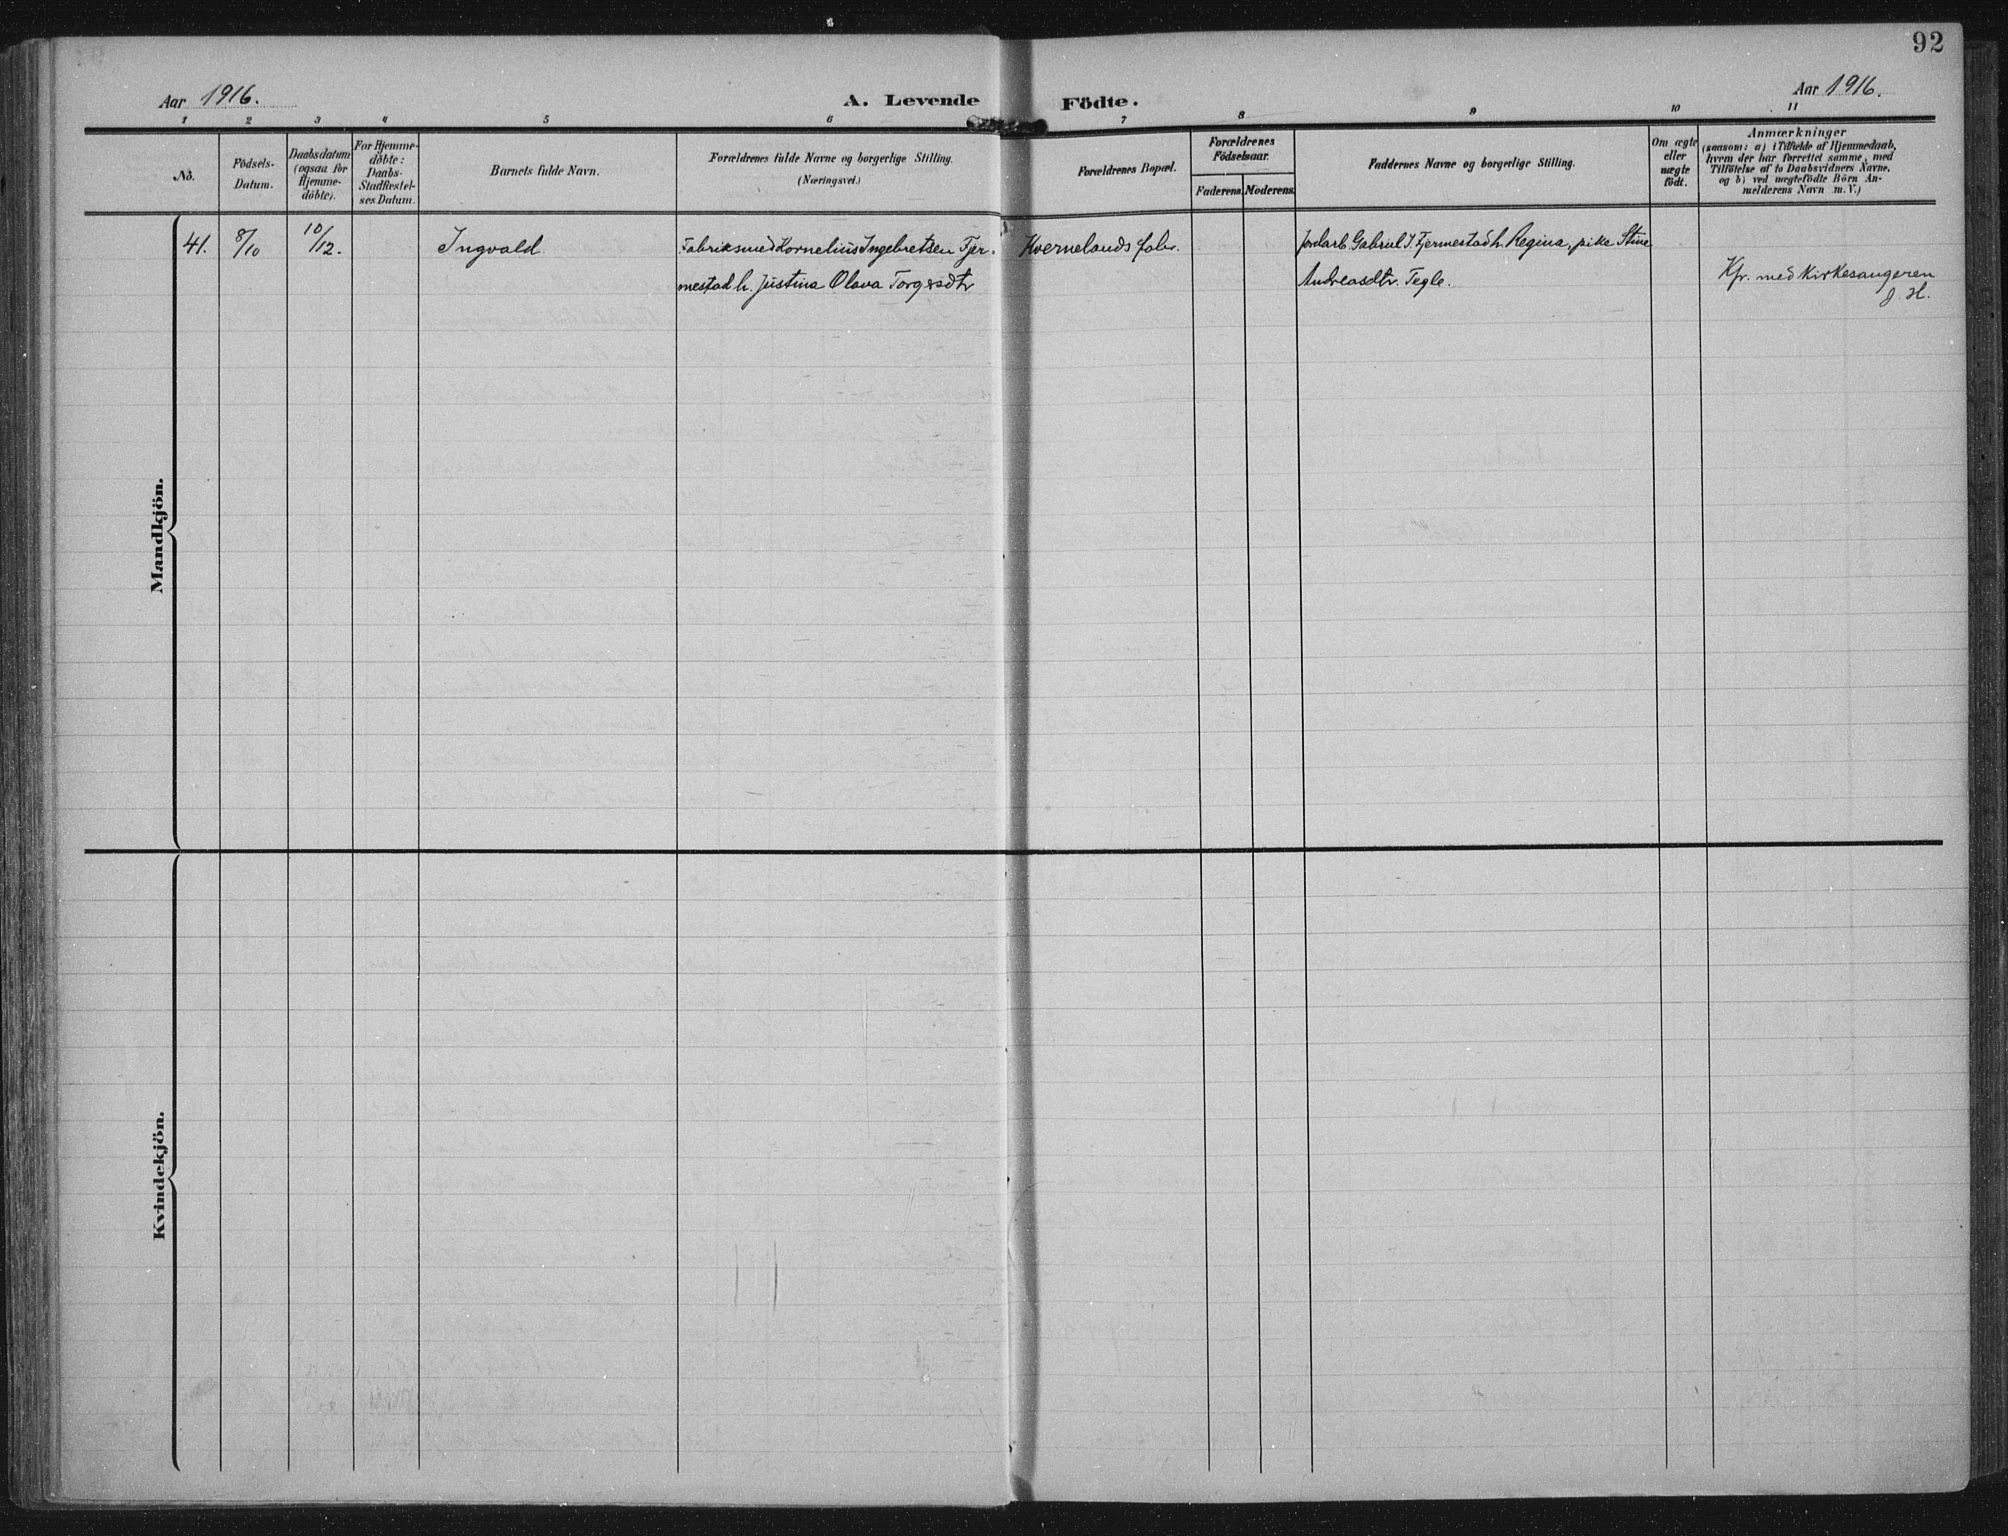 92
Aar 1916.
A. Levende Födte.
Aar 1916.
1 2 3 4 5 6 7 8 9 10 11
No.
Födsels-
Datum.
Daabsdatum
(ogsaa for
Hjemme-
döbte).
For Hjemme-
döbte:
Daabs-
Stadfæstel-
ses Datum.
Barnets fulde Navn.
Forældrenes fulde Navne og borgerlige Stilling.
(Næringsvei.)
Forældrenes Bopæl.
Forældrenes
Födselsaar.
Faderens. Moderens.
Faddernes Navne og borgerlige Stilling.
Om ægte
eller
uægte
födt.
Anmærkninger
(saasom: a) i Tilfælde af Hjemmedaab,
hvem der har forrettet samme, med
Tilföielse af to Daabsvidners Navne,
og b) ved uægtefödte Börn An-
melderens Navn m. V.)
Mandkjön.
41. 8/10 10/12. Ingvald. Fabriksmed Kornelius Ingebretsen Fjer- Kvernelands fabr. Jordarb Gabriel I. Fjermestad h. Regina, pike Stine
mestad h. Justina Olava Torgersdtr Andreasdtr. Tegle. Kfr. med Kirkesangeren
J. H.
Kvindekjön.